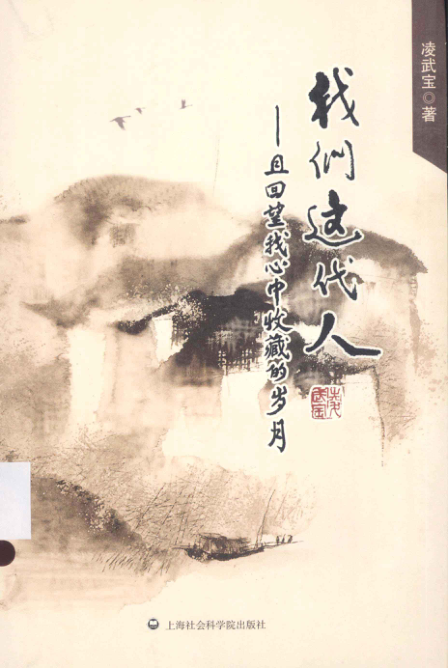 凌武宝◎著
我们这代人
——且回望我心中收藏的岁月
凌武宝
上海社会科学院出版社